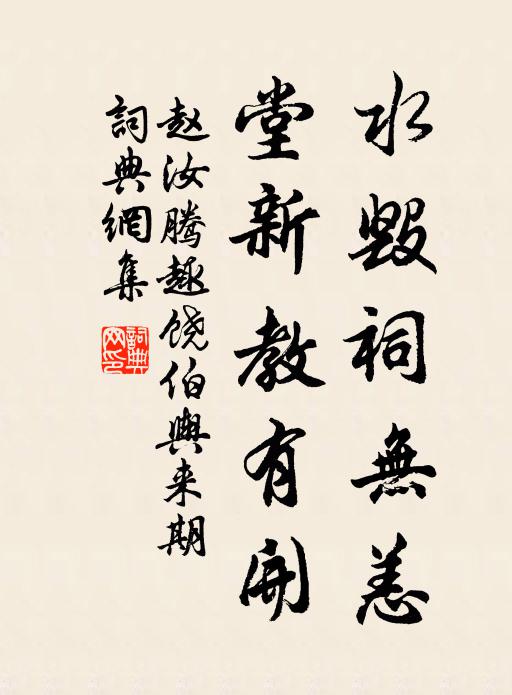 水毀祠無恙
堂新教有開
赵汝腾趣饶伯輿来期
詞典網集
詞典網印